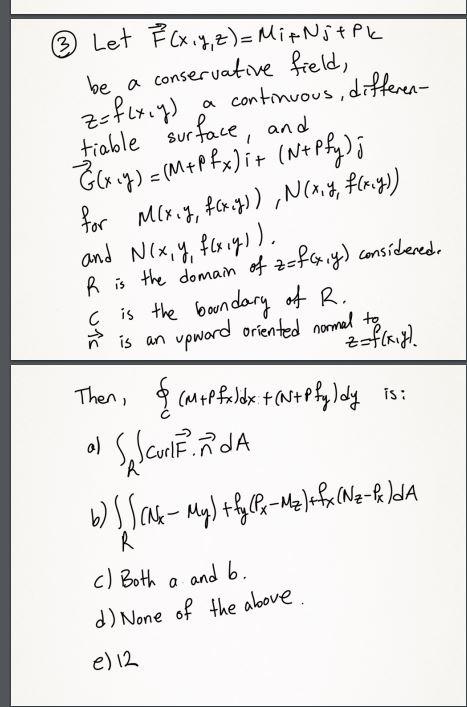 ③ Let F⃗(x,y,z)=Mi+Nj+Pk
be a conservative field,
z=f(x,y) a continuous, differen-
tiable surface, and
G⃗(x,y)=(M+Pfx)i+(N+Pfy)j
for M(x,y,f(x,y)), N(x,y,f(x,y))
and N(x,y,f(x,y)).
R is the domain of z=f(x,y) considered.
C is the boundary of R.
n⃗ is an upward oriented normal to
z=f(x,y).
Then, ∮C (M+Pfx)dx+(N+Pfy)dy is:
a) ∫R∫curlF⃗.n⃗ dA
b) ∫∫R (Nx-My)+fy(Px-Mz)+fx(Nz-Px)dA
c) Both a and b.
d) None of the above.
e) 12